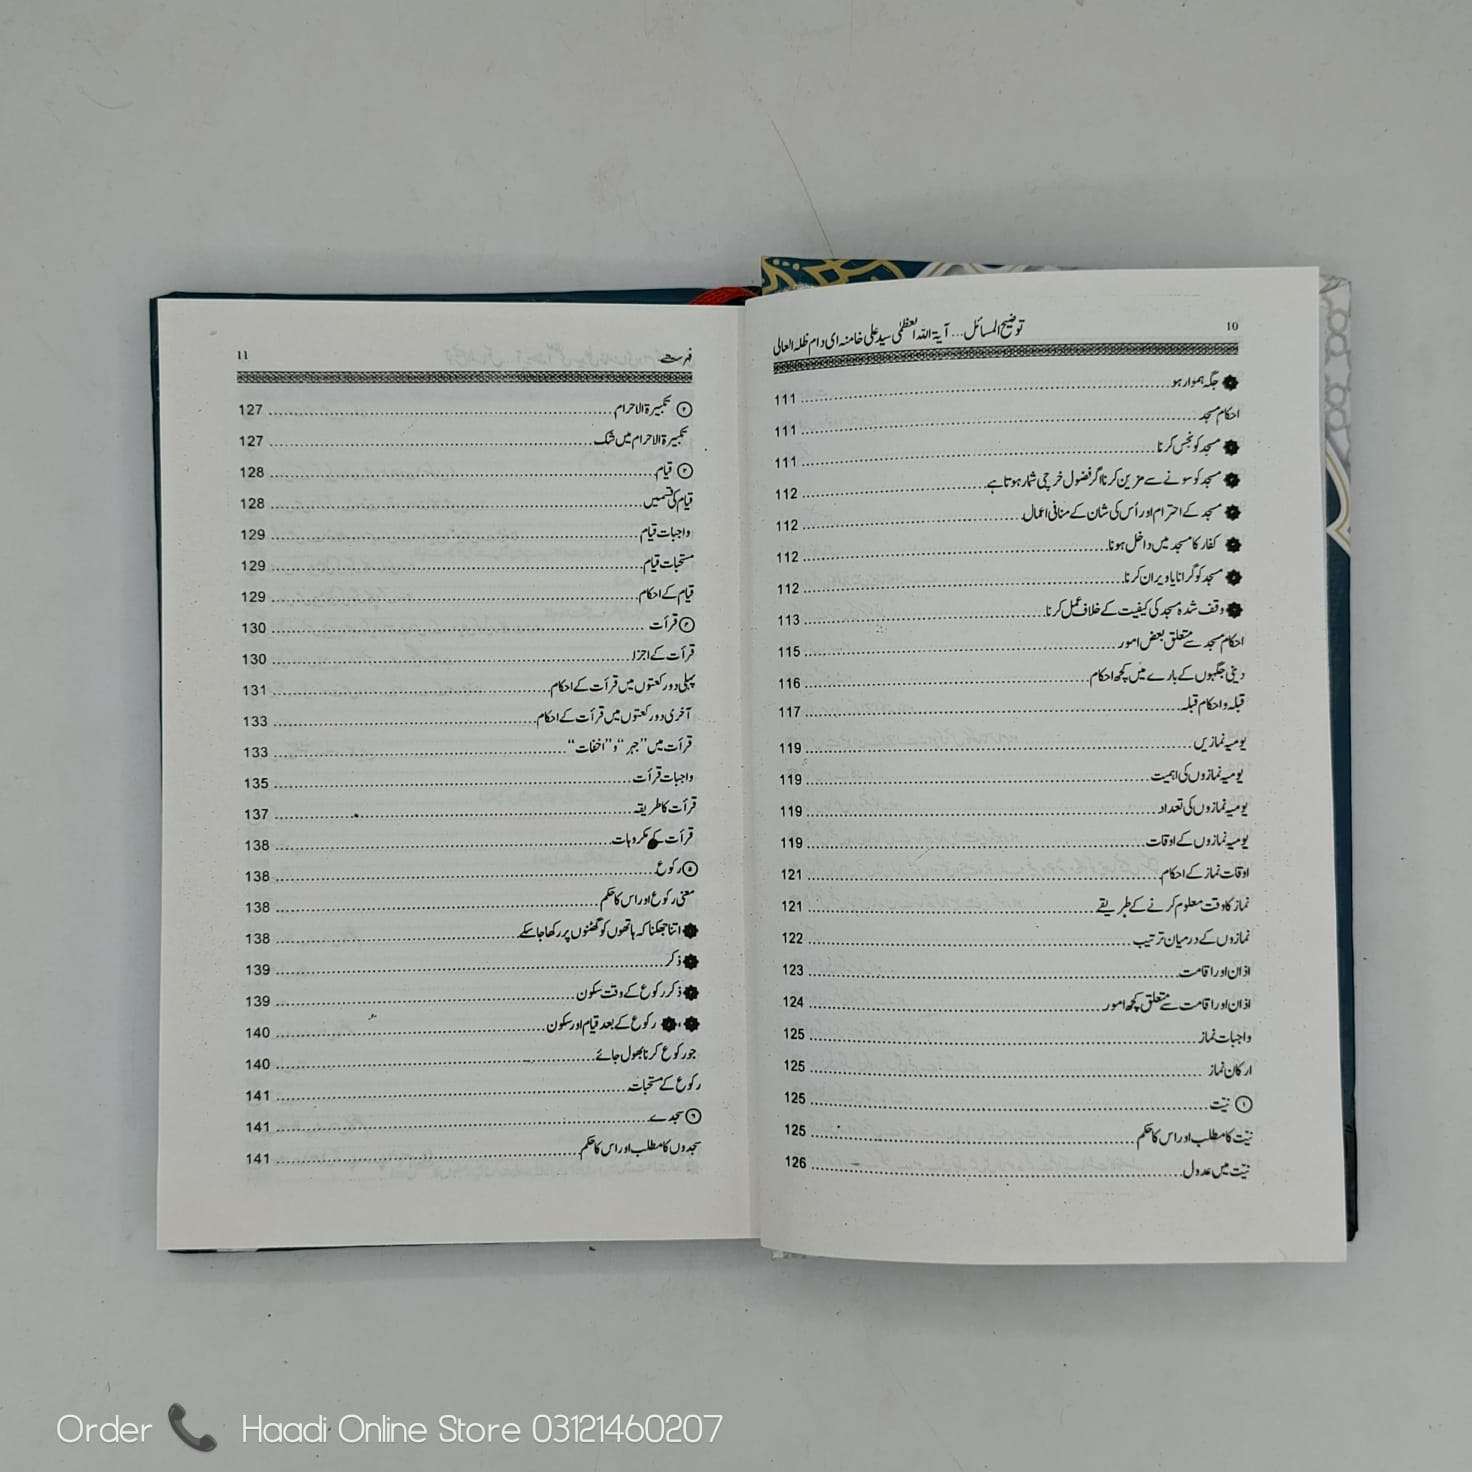 10
توضیح المسائل... آیۃ اللہ العظمٰی سید علی خامنہ ای دام ظلہ العالی
جگہ ہموار ہو ........ 111
احکام مسجد ........ 111
مسجد کو نجس کرنا ........ 111
مسجد کو سونے سے مزین کرنا اگر فضول خرچی شمار ہوتا ہے ........ 112
مسجد کے احترام اور اُس کی شان کے منافی اعمال ........ 112
کفار کا مسجد میں داخل ہونا ........ 112
مسجد کو گرانا یا ویران کرنا ........ 112
وقف شدہ مسجد کی کیفیت کے خلاف عمل کرنا ........ 113
احکام مسجد سے متعلق بعض امور ........ 115
دینی جگہوں کے بارے میں کچھ احکام ........ 116
قبلہ و احکام قبلہ ........ 117
یومیہ نمازیں ........ 119
یومیہ نمازوں کی اہمیت ........ 119
یومیہ نمازوں کی تعداد ........ 119
یومیہ نمازوں کے اوقات ........ 119
اوقات نماز کے احکام ........ 121
نماز کا وقت معلوم کرنے کے طریقے ........ 121
نمازوں کے درمیان ترتیب ........ 122
اذان اور اقامت ........ 123
اذان اور اقامت سے متعلق کچھ امور ........ 124
واجبات نماز ........ 125
ارکان نماز ........ 125
۱ نیّت ........ 125
نیّت کا مطلب اور اس کا حکم ........ 125
نیّت میں عدول ........ 126
فہرست
11
۲ تکبیرۃ الاحرام ........ 127
تکبیرۃ الاحرام میں شک ........ 127
۳ قیام ........ 128
قیام کی قسمیں ........ 128
واجبات قیام ........ 129
مستحبات قیام ........ 129
قیام کے احکام ........ 129
۴ قرأت ........ 130
قرأت کے اجزا ........ 130
پہلی دو رکعتوں میں قرأت کے احکام ........ 131
آخری دو رکعتوں میں قرأت کے احکام ........ 133
قرأت میں "جہر" و "اخفات" ........ 133
واجبات قرأت ........ 135
قرأت کا طریقہ ........ 137
قرأت کے مکروہات ........ 138
۵ رکوع ........ 138
معنی رکوع اور اس کا حکم ........ 138
اتنا جھکنا کہ ہاتھوں کو گھٹنوں پر رکھا جاسکے ........ 138
ذکر ........ 139
ذکر رکوع کے وقت سکون ........ 139
، رکوع کے بعد قیام اور سکون ........ 140
جو رکوع کرنا بھول جائے ........ 140
رکوع کے مستحبات ........ 141
۶ سجدے ........ 141
سجدوں کا مطلب اور اس کا حکم ........ 141
Order Haadi Online Store 03121460207